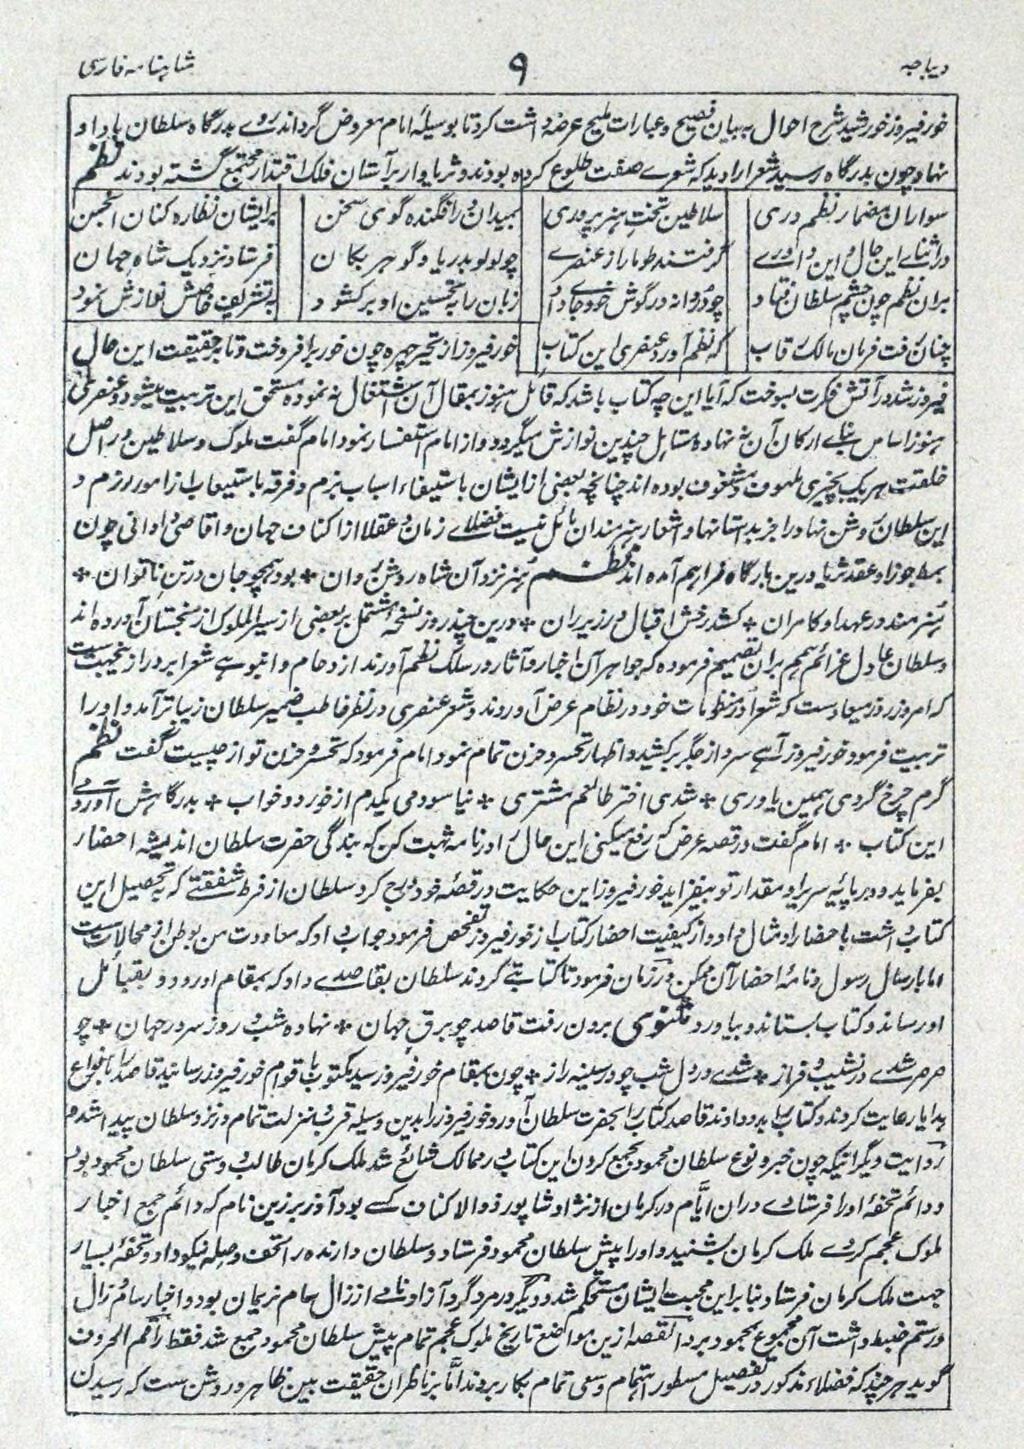 دیباجه
۹
شاہنامہ فارسی
خور فیروز خورشید شرح احوال به بیان فصیح و عبارات ملیح عرضه داشت کرد تا بوسیلهٔ امام معروض گرداند روے بدرگاه سلطان با داد
نهاد چون بدرگاه رسید شعرا را دید که شعرے صفت طلوع کرده بودند و ثریا وار بر آستان فلک اقتدار مجتمع گشته بودند نظم
سواران مضمار نظم دری سلاطین تخت هنر پروری بمیدان در افگنده گوی سخن بر ایشان نظاره کنان انجمن
در اثنای این حال و این داورے گرفتند طومار از عنصرے چو لولو بدریا و گوهر بکان فرستاد نزدیک شاه جهان
بران نظم چون چشم سلطان فتاد چو در دانه در گوش خود جای داد زبان را بتحسین او بر کشود به تشریف خاصش نوازش نمود
چنان رفت فرمان مالک رقاب که نظم آورد عنصری این کتاب خور فیروز از تحیر چهره چون خور برافروخت و تا بر حقیقت این حال
فیروز شد در آتش فکرت بسوخت که آیا این چه کتاب باشد که قائل هنوز بمقال آن اشتغال نه نموده مستحق این تربیت میشود و عنصری
هنوز اساس بنای ارکان آن نه نهاده متایل چندین نوازش میگردد و از امام استفسار نمود امام گفت ملوک و سلاطین در اصل
خلقت هر یک بچیزی ملهوف و مشغوف بوده اند چنانچه بعضی از ایشان باستیفاء اسباب بزم و فرقه باستیعاب از امور رزم و
این سلطان روشن نهاد را جز بداستانها و اشعار هنرمندان مائل نیست فضلاے زمان و عقلا از اکناف جهان و اقاصی و ادانی چون
جوزا و عقد ثریا درین بارگاه فراهم آمده اند نظم هنر نزد آن شاه روشن روان * بود همچو جان در تن ناتوان *
هنرمند در عهد او کامران * کشد رخش اقبال در زیر ران * درین چند روز نسخه مشتمل بر بعضی از سیر الملوک از سجستان آورده اند
و سلطان عادل عزائم هم بران تصمیم فرموده که جواهر آن اخبار و آثار در سلک نظم آورند ازدحام و انبوهے شعرا بر در ازینجهت ست
که امروز روز میعاد ست که شعرا در منظومات خود در نظام عرض آوردند و شعر عنصری در نظر خاطب ضمیر سلطان زیباتر آمد و او را
تربیت فرمود خور فیروز آهے سرد از جگر بر کشید و اظهار تحسر و حزن تمام نمود امام فرمود که تحسر و حزن تو از چیست گفت نظم
گرم چرخ گردی همین یاوری * شدی اختر طالعم مشتری * نیاسودمی یکدم از خورد و خواب * بدرگاهش آوردے
این کتاب * امام گفت در قصه عرض که رفع میکنی این حال را در نامه ثبت کن که بندگی حضرت سلطان اندیشه احضار
بفرماید و در پایه سریر او مقدار تو بیفزاید خور فیروز این حکایت در قصهٔ خود درج کرد سلطان از فرط شفقتے که به تحصیل این
کتاب داشت باحضار او مثال داد و از کیفیت احضار کتاب از خور فیروز تفحص فرمود جواب داد که معاودت من بوطن از محالات ست
اما بارسال رسول و نامه احضار آن ممکن در زمان فرمود تا کتابتے کردند سلطان بقاصدے داد که بمقام او رود و بقبائل
او رساند و کتاب بستاند و بیاورد مثنوی برون رفت قاصد چو برق جهان * نهاده شب و روز سر در جهان * چو
صرصر شدے در نشیب و فراز * شدے در دل شب چو در سینه راز * چون بمقام خور فیروز رسید مکتوب باقوام خور فیروز رسانید قاصد را بانواع
هدایا رعایت کردند و کتاب را بدو دادند قاصد کتاب را بحضرت سلطان آورد و خور فیروز را بدین وسیله قرب منزلت تمام در نزد سلطان پیدا شد و
روایت دیگر آنکه چون خبر ولوع سلطان محمود بجمع کردن این کتاب در ممالک شائع شد ملک کرمان طالب دوستی سلطان محمود بود
و دائم تحفهٔ او را فرستادے دران ایام در کرمان از نژاد شاپور ذوالاکتاف کسے بود آذر برزین نام که دائم جمع اخبار
ملوک عجم کردے ملک کرمان بشنید و او را پیش سلطان محمود فرستاد و سلطان دارنده را تحف و صله نیکو داد و تحفهٔ بسیار
جهت ملک کرمان فرستاد بنا براین محبت ایشان مستحکم شد و دیگر در مرد گرد آزاد نامے از زال سام نریمان بود و اخبار سام و زال
و رستم ضبط داشت آن مجموع بمحمود برد القصه ازین مواضع تاریخ ملوک عجم تمام پیش سلطان محمود جمع شد فقط راقم الحروف
گوید هر چند که فضلاء مذکور در تفصیل مسطور اهتمام و سعی تمام بکار بردند اما بر ناظران حقیقت بین ظاهر و روشن ست که رسیدن